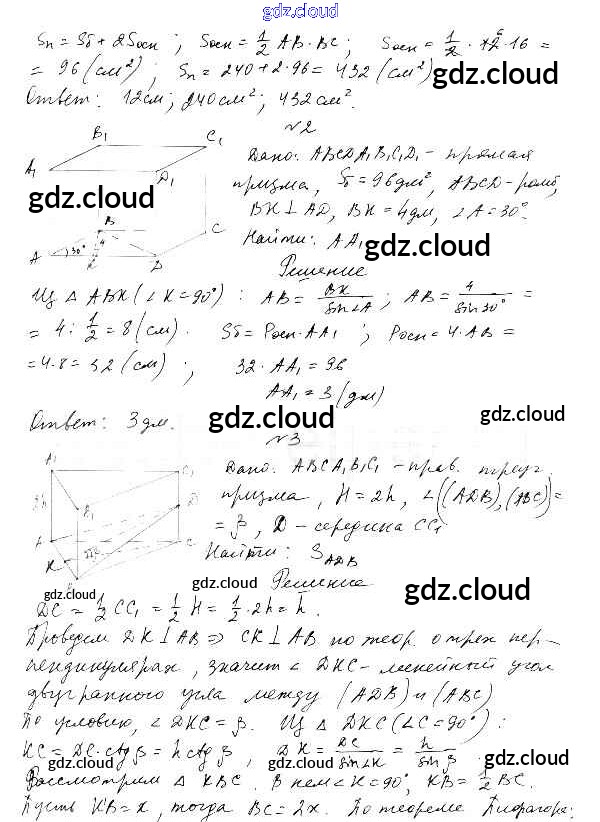 gdz.cloud
Sп = Sб + 2Sосн ; Sосн = 1/2 AB·BC; Sосн = 1/2 · 12 · 16 =
= 96 (см²) ; Sп = 240 + 2·96 = 432 (см²) gdz.cloud
Ответ: 12 см; 240 см²; 432 см².
№2
B₁ C₁
A₁ D₁
Дано: ABCDA₁B₁C₁D₁ - прямая
призма, Sб = 96 дм², ABCD - ромб,
gdz.cloud
BK ⊥ AD, BK = 4 дм, ∠A = 30°.
B C
4
A 30° K D
Найти: AA₁ gdz.cloud
Решение
Из △ ABK (∠K = 90°) : AB = BK/sin∠A ; AB = 4/sin30° =
= 4 : 1/2 = 8 (см). Sб = Pосн·AA₁ ; Pосн = 4·AB =
= 4·8 = 32 (см) ; 32·AA₁ = 96
AA₁ = 3 (дм)
Ответ: 3 дм. gdz.cloud gdz.cloud
№3
A₁ C₁
Дано: ABCA₁B₁C₁ - прав. треуг.
2h B₁ D
призма, H = 2h, ∠((ADB),(ABC)) =
gdz.cloud
= β, D - середина CC₁
A C
K
Найти: S ADB
gdz.cloud gdz.cloud Решение gdz.cloud
DC = 1/2 CC₁ = 1/2 H = 1/2 · 2h = h.
Проведем DK ⊥ AB ⇒ CK ⊥ AB по теор. о трех пер-
пендикулярах, значит ∠ DKC - линейный угол
двугранного угла между (ADB) и (ABC)
По условию, ∠ DKC = β. Из △ DKC (∠C = 90°) :
KC = DC·ctg β = h ctg β , DK = DC/sin∠K = h/sin β
gdz.cloud gdz.cloud
Рассмотрим △ KBC. В нем ∠K = 90°, KB = 1/2 BC.
Пусть KB = x, тогда BC = 2x. По теореме Пифагора: